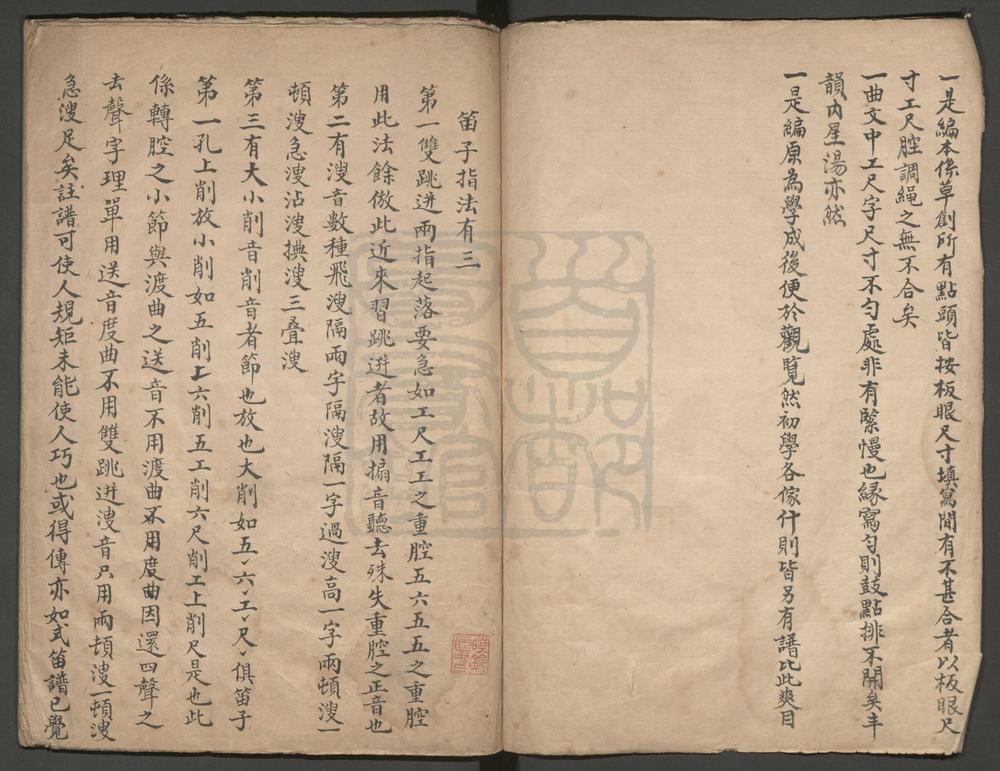 一是編本係草創所有點頭皆按板眼尺寸填寫間有不甚合者以板眼尺
寸工尺腔調繩之無不合矣
一曲文中工尺字尺寸不勻處非有緊慢也緣寫勻則鼓點排不開矣丰
韻內星湯亦然
一是編原為學成後便於觀覽然初學各傢什則皆另有譜比此爽目
笛子指法有三
第一雙跳迸兩指起落要急如工尺工工之重腔五六五五之重腔
用此法餘倣此近來習跳迸者故用搧音聽去殊失重腔之正音也
第二有溲音數種飛溲隔兩字隔溲隔一字過溲高一字兩頓溲一
頓溲急溲沾溲㨪溲三叠溲
第三有大小削音削音者節也放也大削如五、六、工、尺、俱笛子
第一孔上削放小削如五削上六削五工削六尺削工上削尺是也此
係轉腔之小節與渡曲之送音不用渡曲不用度曲因還四聲之
去聲字理單用送音度曲不用雙跳迸溲音只用兩頓溲一頓溲
急溲足矣註譜可使人規矩未能使人巧也或得傳亦如式笛譜已覺